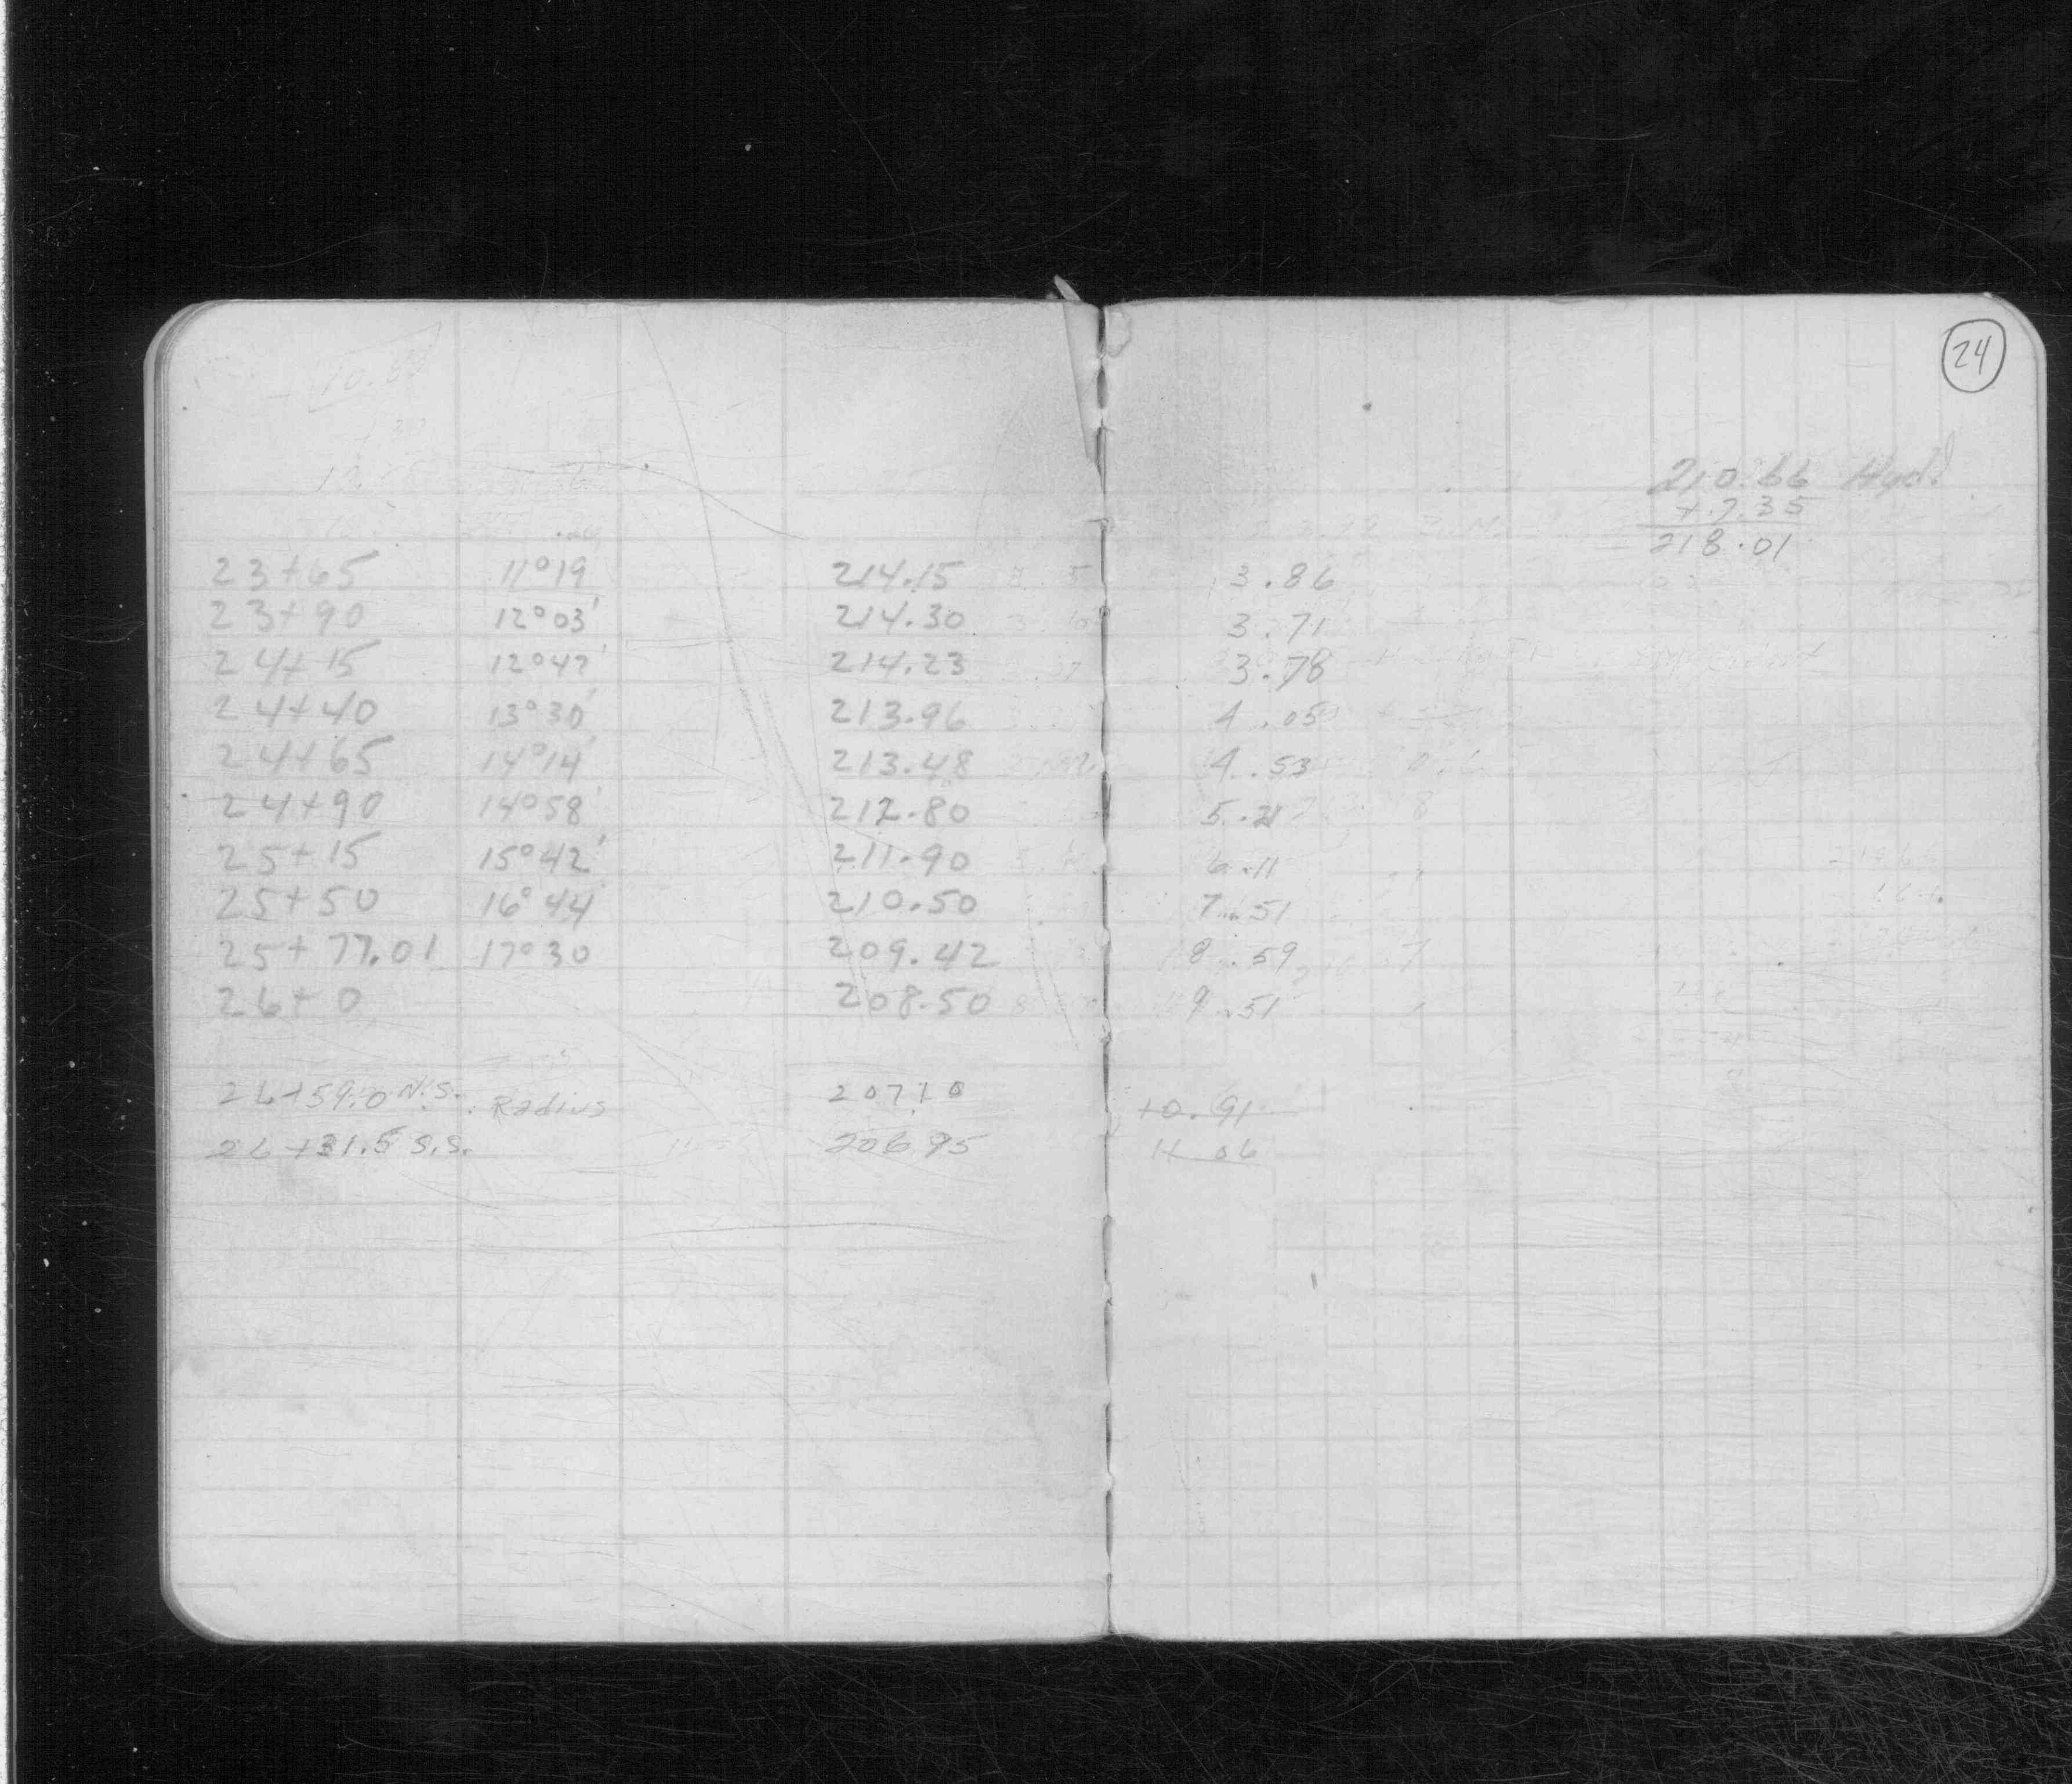 24
210.66 Hyd.
+7.35
218.01
23+65 11°19 214.15 3.86
23+90 12°03' 214.30 3.71
24+15 12°47' 214.23 3.78
24+40 13°30' 213.96 4.05
24+65 14°14' 213.48 4.53
24+90 14°58' 212.80 5.21
25+15 15°42' 211.90 6.11
25+50 16°44' 210.50 7.51
25+77.01 17°30 209.42 8.59
26+0 208.50 9.51
26+59.0 N.S. Radius 207.10 10.91
26+31.5 S.S. 206.95 11.06